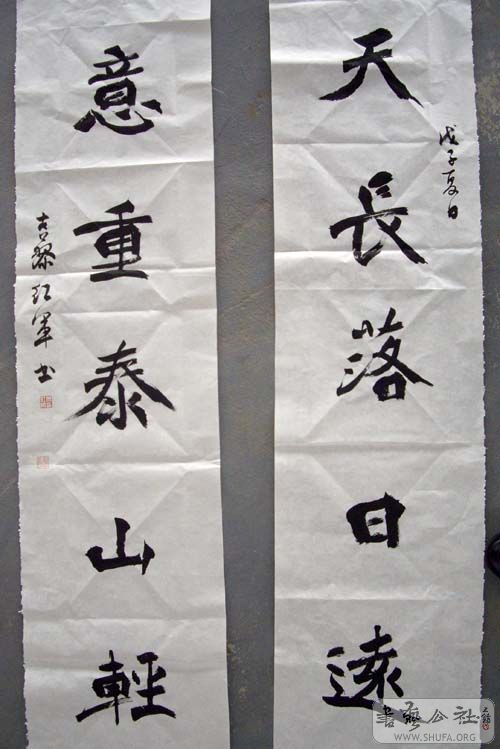 天長落日遠
戊子夏日
意重泰山輕
古黎红軍书
書艺公社
WWW.SHUFA.ORG